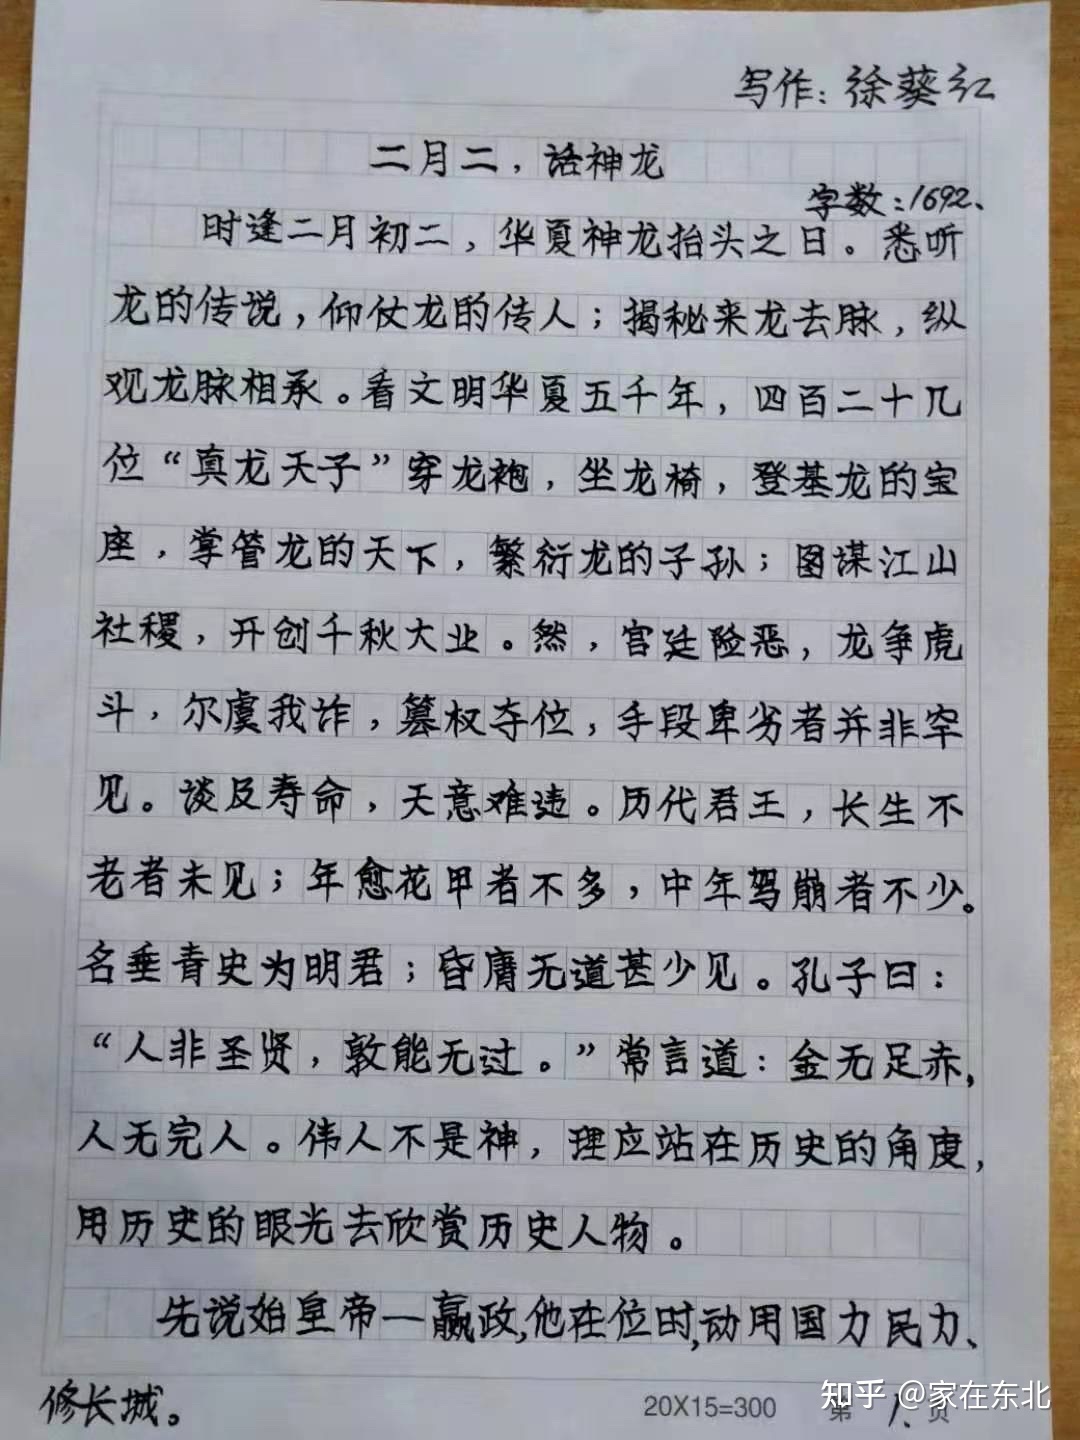 写作：徐葵红
二月二，话神龙
字数：1692、
时逢二月初二，华夏神龙抬头之日。悉听
龙的传说，仰仗龙的传人；揭秘来龙去脉，纵
观龙脉相承。看文明华夏五千年，四百二十几
位“真龙天子”穿龙袍，坐龙椅，登基龙的宝
座，掌管龙的天下，繁衍龙的子孙；图谋江山
社稷，开创千秋大业。然，宫廷险恶，龙争虎
斗，尔虞我诈，篡权夺位，手段卑劣者并非罕
见。谈及寿命，天意难违。历代君王，长生不
老者未见；年愈花甲者不多，中年驾崩者不少。
名垂青史为明君；昏庸无道甚少见。孔子曰：
“人非圣贤，敦能无过。”常言道：金无足赤，
人无完人。伟人不是神，理应站在历史的角度，
用历史的眼光去欣赏历史人物。
先说始皇帝一赢政，他在位时，动用国力民力、
修长城。
20X15=300
第1、页
知乎 @家在东北